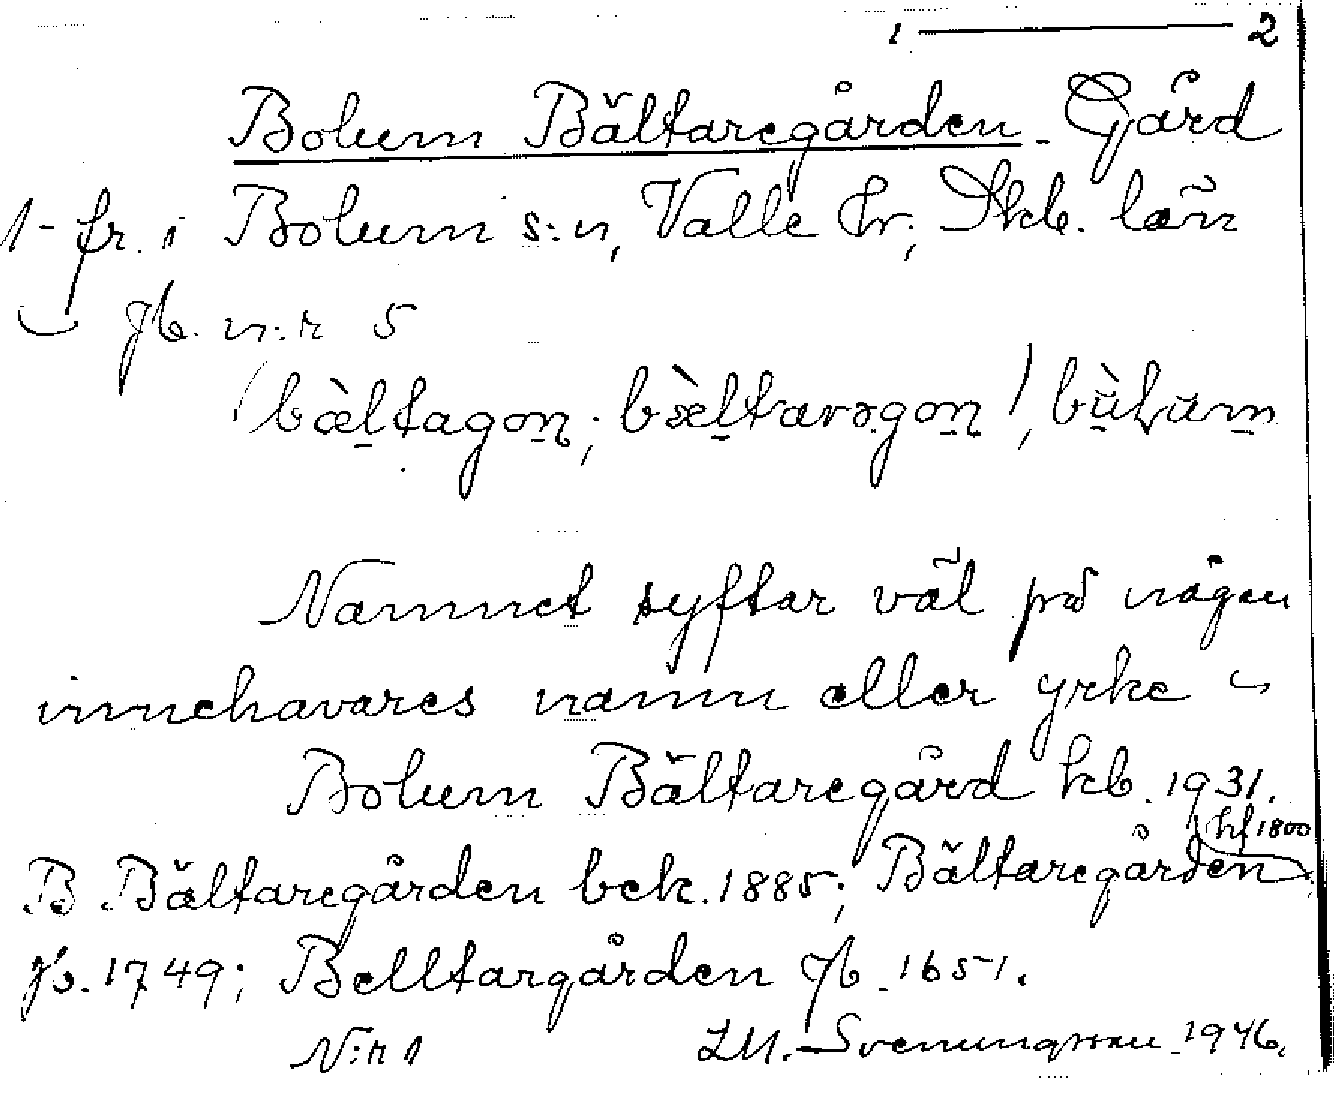 1 — 2
Bolum Bältaregården - Gård
1- fr. i Bolum s:n, Valle hr; Skb. län
jb. n:r 5
(bæ̀ltagon; bæ̀ltarəgon), bùlum
Namnet syftar väl på någon
innehavares namn eller yrke
Bolum Bältaregård kb. 1931.
hf 1800
B Bältaregården bek. 1885; Bältaregården
jb. 1749; Belltargården jb. 1651.
N:r 1 Svenungsson 1946.